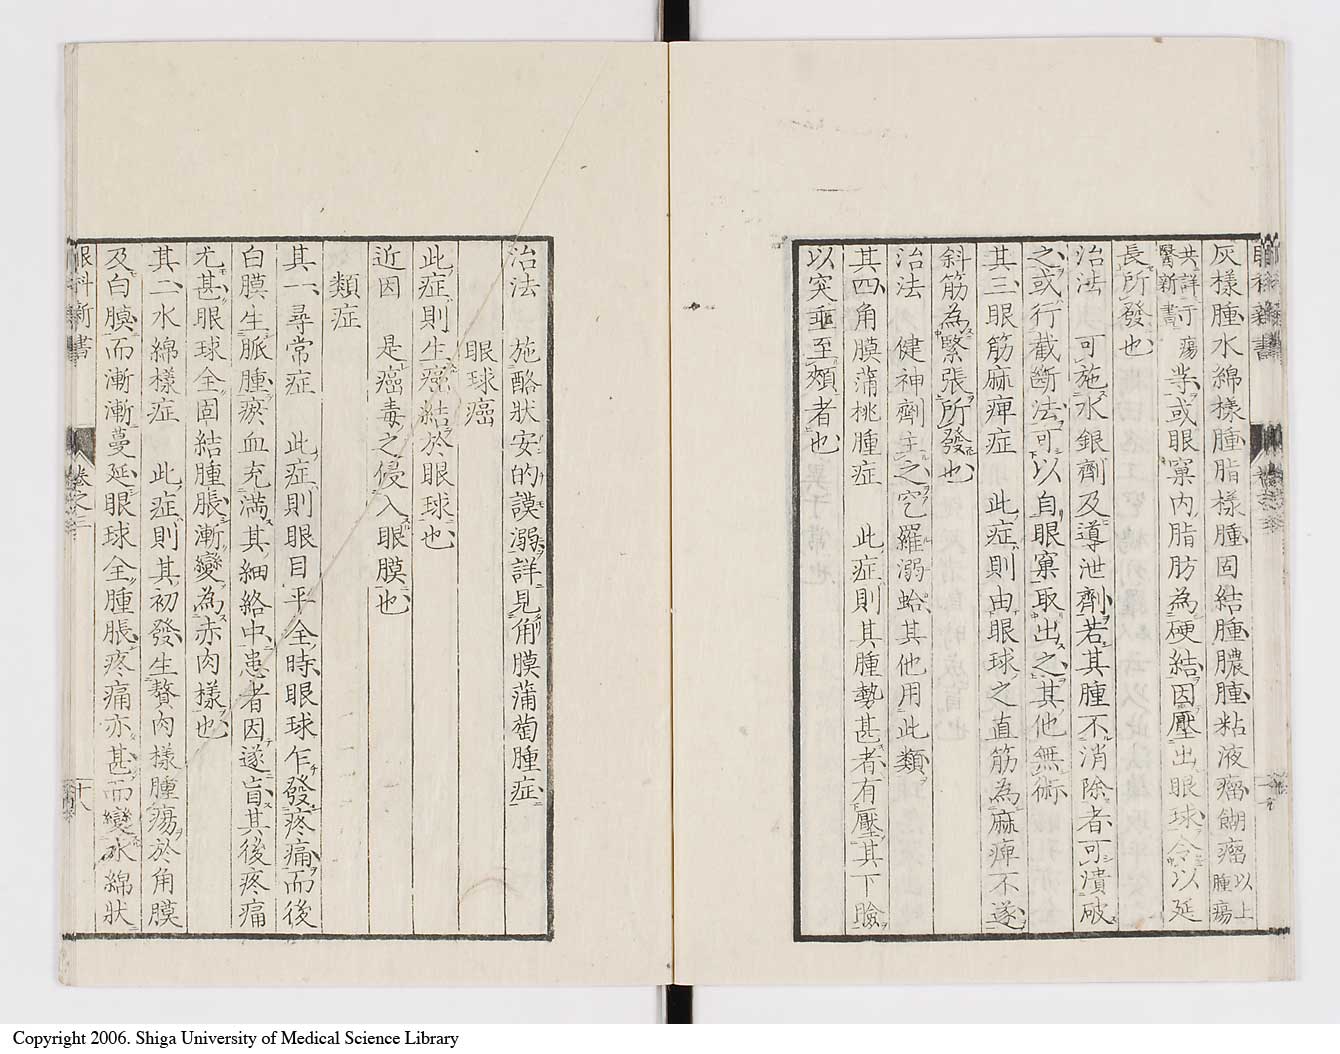 眼科新書
灰樣腫水綿樣腫脂樣腫固結腫膿腫粘液瘤餬瘤以上腫瘍
共詳于瘍醫新書 業或眼窠内脂肪為硬結因壓出眼球令以延
長所發也
治法 可施水銀劑及導泄劑若其腫不消除者可潰破
之或行截斷法可以自眼窠取出之其他無術
其三眼筋麻痺症 此症則由眼球之直筋為麻痺不遂
斜筋為緊張所發也
治法 健神劑主之羅溺蛤其他用此類
其四角膜蒲桃腫症 此症則其腫勢甚者有壓其下瞼
以突垂至頰者也
治法 施酪狀安的謨溺詳見角膜蒲萄腫症
眼球癌
此症則生癌結於眼球也
近因 是癌毒之侵入眼膜也
類症
其一尋常症 此症則眼目平全時眼球乍發疼痛而後
白膜生脈腫瘀血充満其細絡中患者因遂盲其後疼痛
尤甚眼球全固結腫脹漸變為赤肉樣也
其二水綿樣症 此症則其初發生贅肉樣腫瘍於角膜
及白膜而漸漸蔓延眼球全腫脹疼痛亦甚而變水綿狀
眼科新書 卷之三 十八
Copyright 2006. Shiga University of Medical Science Library